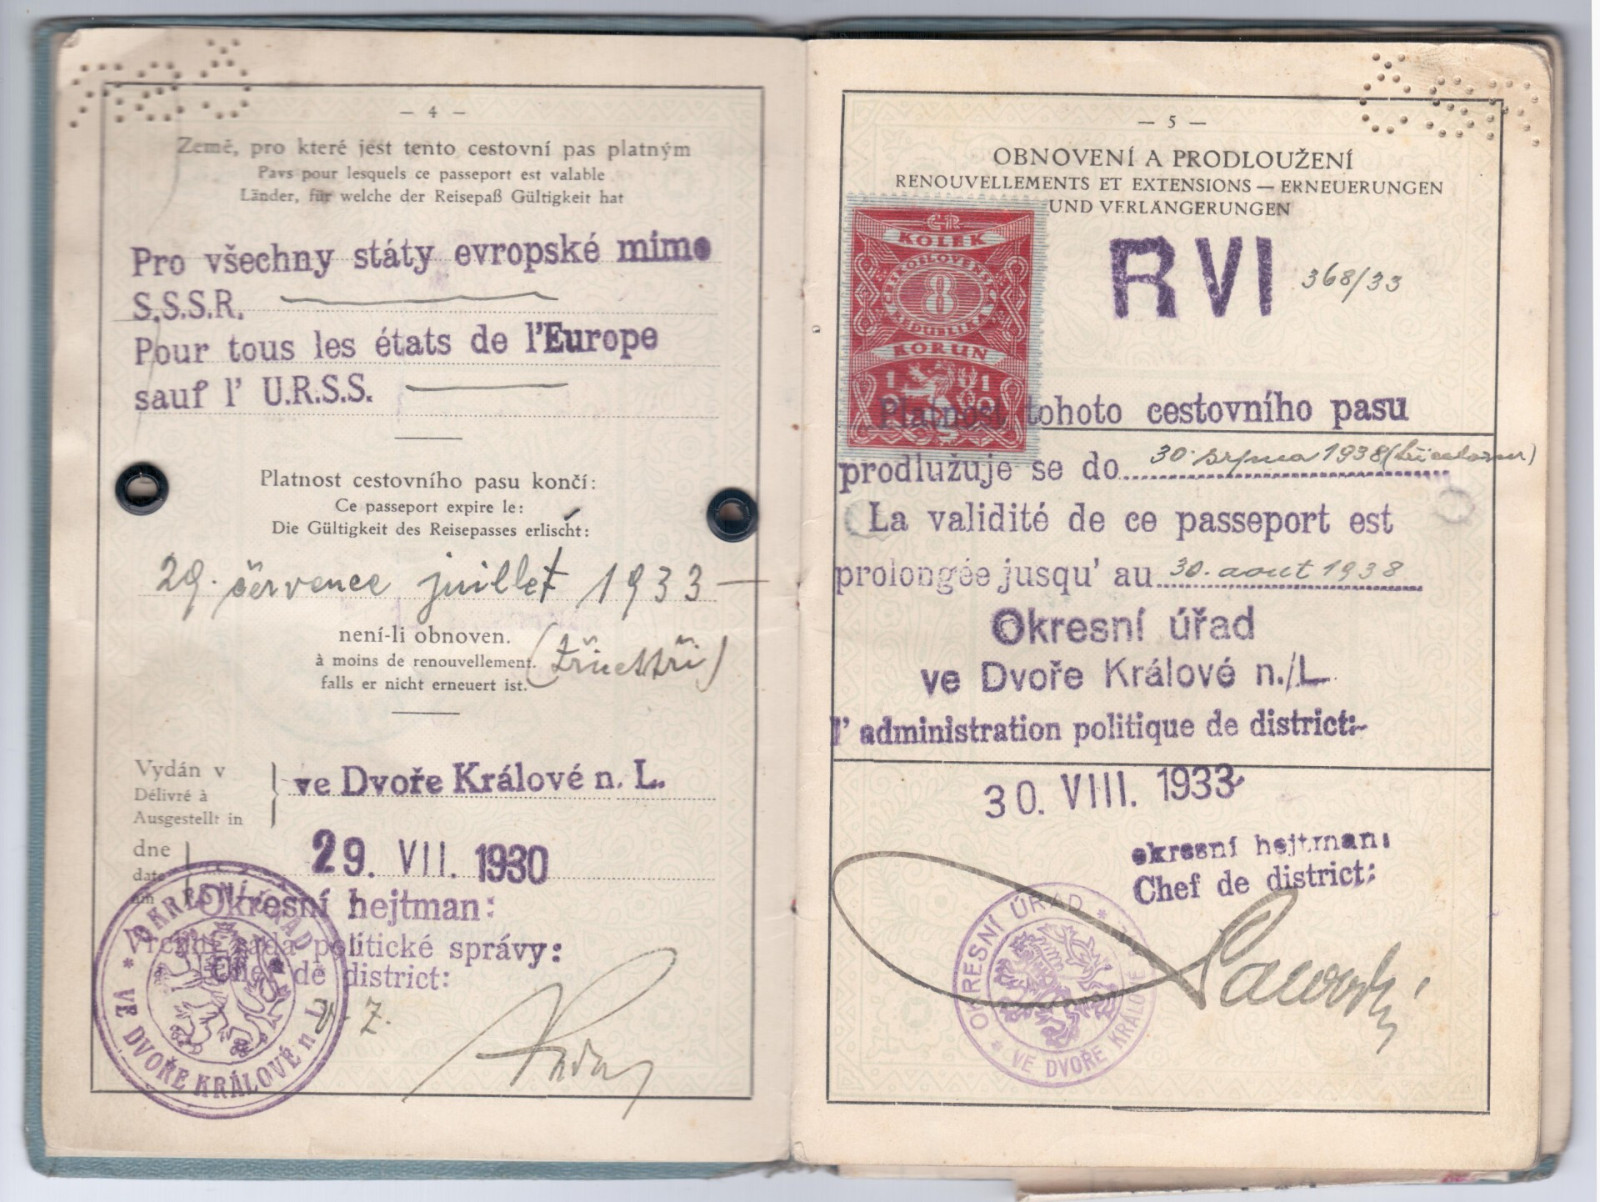 — 4 —
Země, pro které jest tento cestovní pas platným
Pays pour lesquels ce passeport est valable
Länder, für welche der Reisepaß Gültigkeit hat
Pro všechny státy evropské mimo
S.S.S.R.
Pour tous les états de l'Europe
sauf l' U.R.S.S.
Platnost cestovního pasu končí:
Ce passeport expire le:
Die Gültigkeit des Reisepasses erlischt:
29. července juillet 1933 —
není-li obnoven.
à moins de renouvellement.
falls er nicht erneuert ist.
(třicettři)
Vydán v
Délivré à
Ausgestellt in
ve Dvoře Králové n. L.
dne
date
am
29. VII. 1930
Okresní hejtman:
Vrchní rada politické správy:
Chef de district:
v. z.
OKRESNÍ ÚŘAD * VE DVOŘE KRÁLOVÉ n. L. *
— 5 —
OBNOVENÍ A PRODLOUŽENÍ
RENOUVELLEMENTS ET EXTENSIONS — ERNEUERUNGEN
UND VERLÄNGERUNGEN
KOLEK
ČESKOSLOVENSKÁ
8
REPUBLIKA
KORUN
RVI 368/33
Platnost tohoto cestovního pasu
prodlužuje se do 30. srpna 1938
La validité de ce passeport est
prolongée jusqu' au 30. aout 1938
Okresní úřad
ve Dvoře Králové n./L.
l' administration politique de district:
30. VIII. 1933
okresní hejtman:
Chef de district:
OKRESNÍ ÚŘAD * VE DVOŘE KRÁLOVÉ